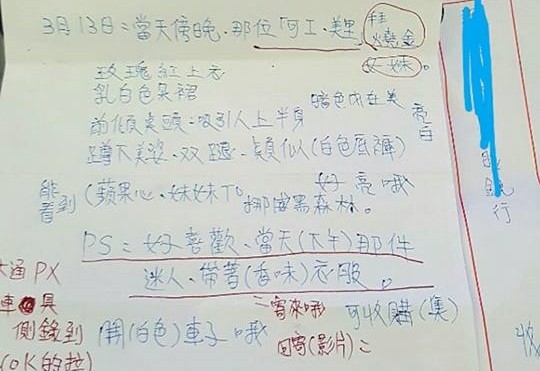 3月13日：當天傍晚、那位「阿工、美里」
燒金
好妹。
玫瑰紅上衣
乳白色呆裙
暗色內在美
亮白
前傾桌頭：吸引人上半身
蹲下美姿、双腿、類似(白色底褲)
好亮哦
能看到
(蘋果心、妹妹T。挪威黑森林。
PS：好喜歡、當天(下午)那件
迷人、帶著(香味)衣服。
通PX
車具
側錄到
開(白色)車子哦
(OK的拉)
二寄來哦 可收購(集)
回寄(影片)：
銀行
收